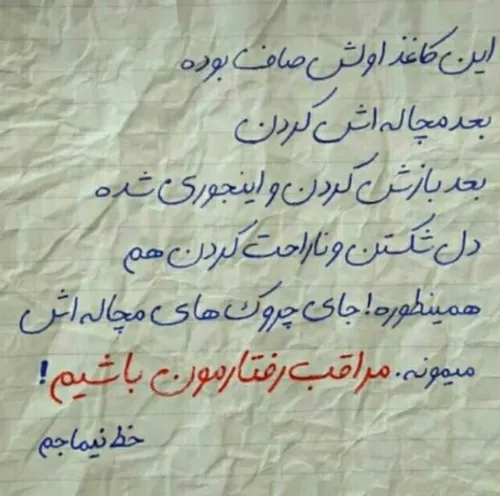 این کاغذ اولش صاف بوده
بعد مچاله اش کردن
بعد بازش کردن و اینجوری شده
دل شکستن و ناراحت کردن هم
همینطوره! جای چروک های مچاله اش
میمونه. مراقب رفتارمون باشیم!
خط نیما جم